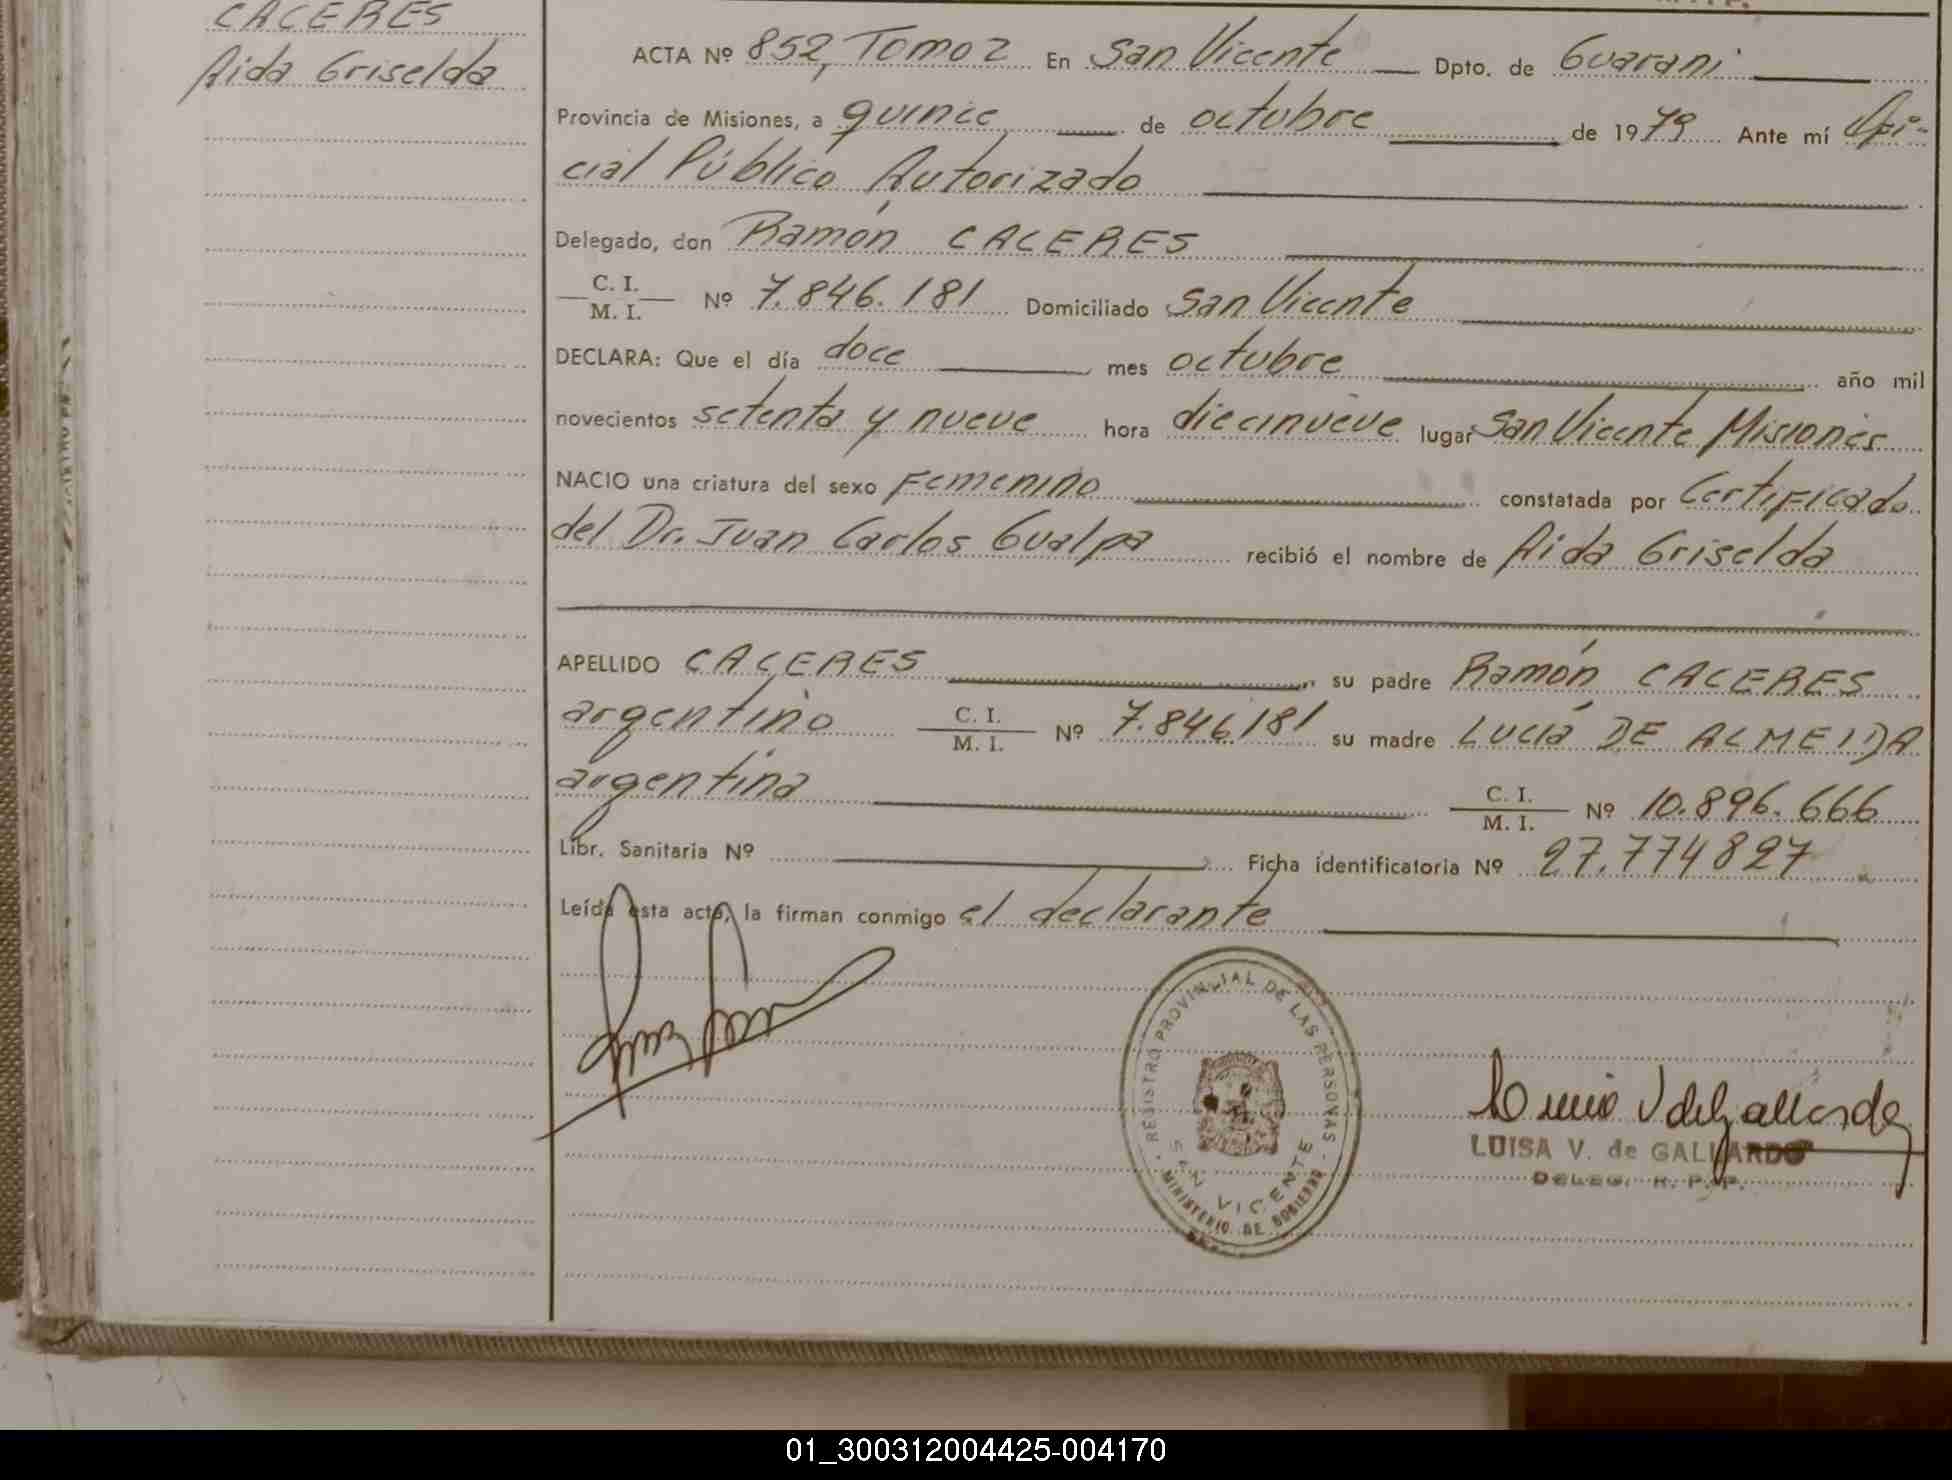 CACERES
Aida Griselda
ACTA Nº 852, Tomo 2 En San Vicente Dpto. de Guaraní
Provincia de Misiones, a quince de octubre de 1979 Ante mí Ofi-
cial Público Autorizado
Delegado, don Ramón CACERES
C. I.
M. I. Nº 7.846.181 Domiciliado San Vicente
DECLARA: Que el día doce mes octubre año mil
novecientos setenta y nueve hora diecinueve lugar San Vicente Misiones
NACIO una criatura del sexo Femenino constatada por Certificado
del Dr. Juan Carlos Gualpa recibió el nombre de Aida Griselda
APELLIDO CACERES su padre Ramón CACERES
argentino C. I.
M. I. Nº 7.846.181 su madre Lucía DE ALMEIDA
argentina C. I.
M. I. Nº 10.896.666
Libr. Sanitaria Nº Ficha identificatoria Nº 27.774827
Leída esta acta, la firman conmigo el declarante
REGISTRO PROVINCIAL DE LAS PERSONAS
SAN VICENTE
MINISTERIO DE GOBIERNO
LUISA V. de GALLARDO
DELEG. R. P. P.
01_300312004425-004170